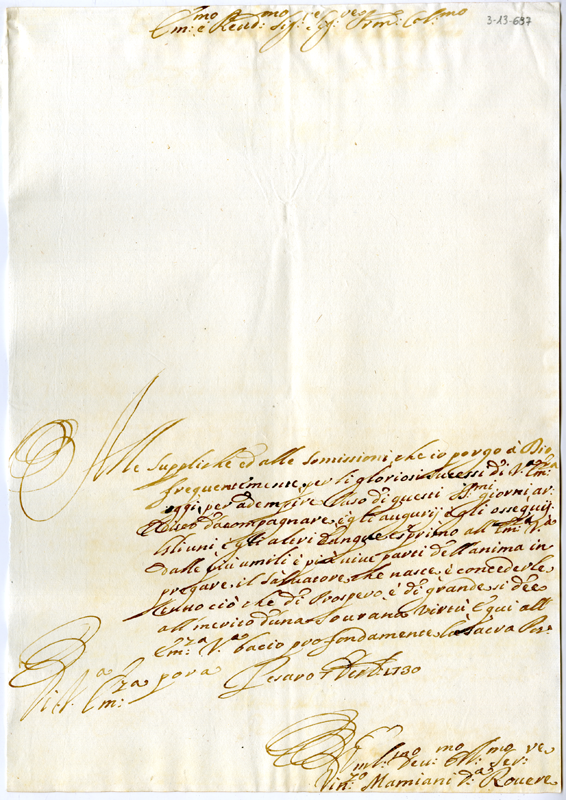 Em:mo e Reu:mo Sig:re Sig:re Prõn: Col:mo
3-13-697
Alle suppliche ed alle somissioni, che io porgo à Dio
frequentemente per li gloriosi sucessi di V:a Em:za
oggi per adempire l'uso di questi S:mi giorni ar:
accompagnare, e gli augurij e gli ossequij.
Gli uni, e gli altri dunque esprimo all' Em:za V:a
dalle più umili e più vive parti dell'anima in
pregare il Salvatore, che nasce à concederle
tutto ciò che di Prospero, e di grande si dee
al merito d'una Sourana Virtù. E qui all'
Em:za V:a bacio profondamente la Sacra Por:
Di V:a Em:za pora
Pesaro 1730
Um:mo Deu:mo Obl:mo Ser:re
Vin:zo Mamiani d:a Rouere